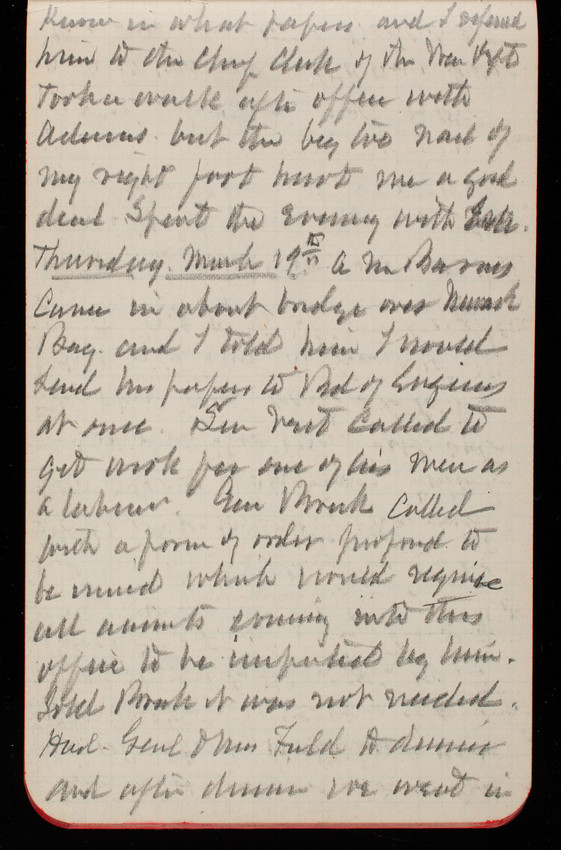 Know in what papers and I referred
him to the Chf Clerk of the War Dept
Took a walk after office with
Adams but the big toe nail of
my right foot hurt me a good
deal Spent the Evening with
Thursday. March 19th A M Barnes
Came in about bridge over Newark
Bay. and I told him I would
Send his papers to Bd of Engineers
at once. Sen Vest Called to
get work for one of his men as
a laborer. Genl Called
with a form of order proposed to
be issued which would require
all accounts coming into this
office to be inspected by him.
Told it was not needed.
Had Genl & Mrs Field to dinner
and after dinner we went in